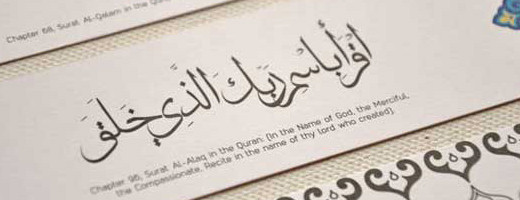 Chapter 68, Surat Al-Qalam in the Qur
اقرأ باسم ربك الذي خلق
Chapter 96, Surat Al-Alaq in the Quran: (In the Name of God, the Merciful,
the Compassionate, Recite in the name of thy lord who created).